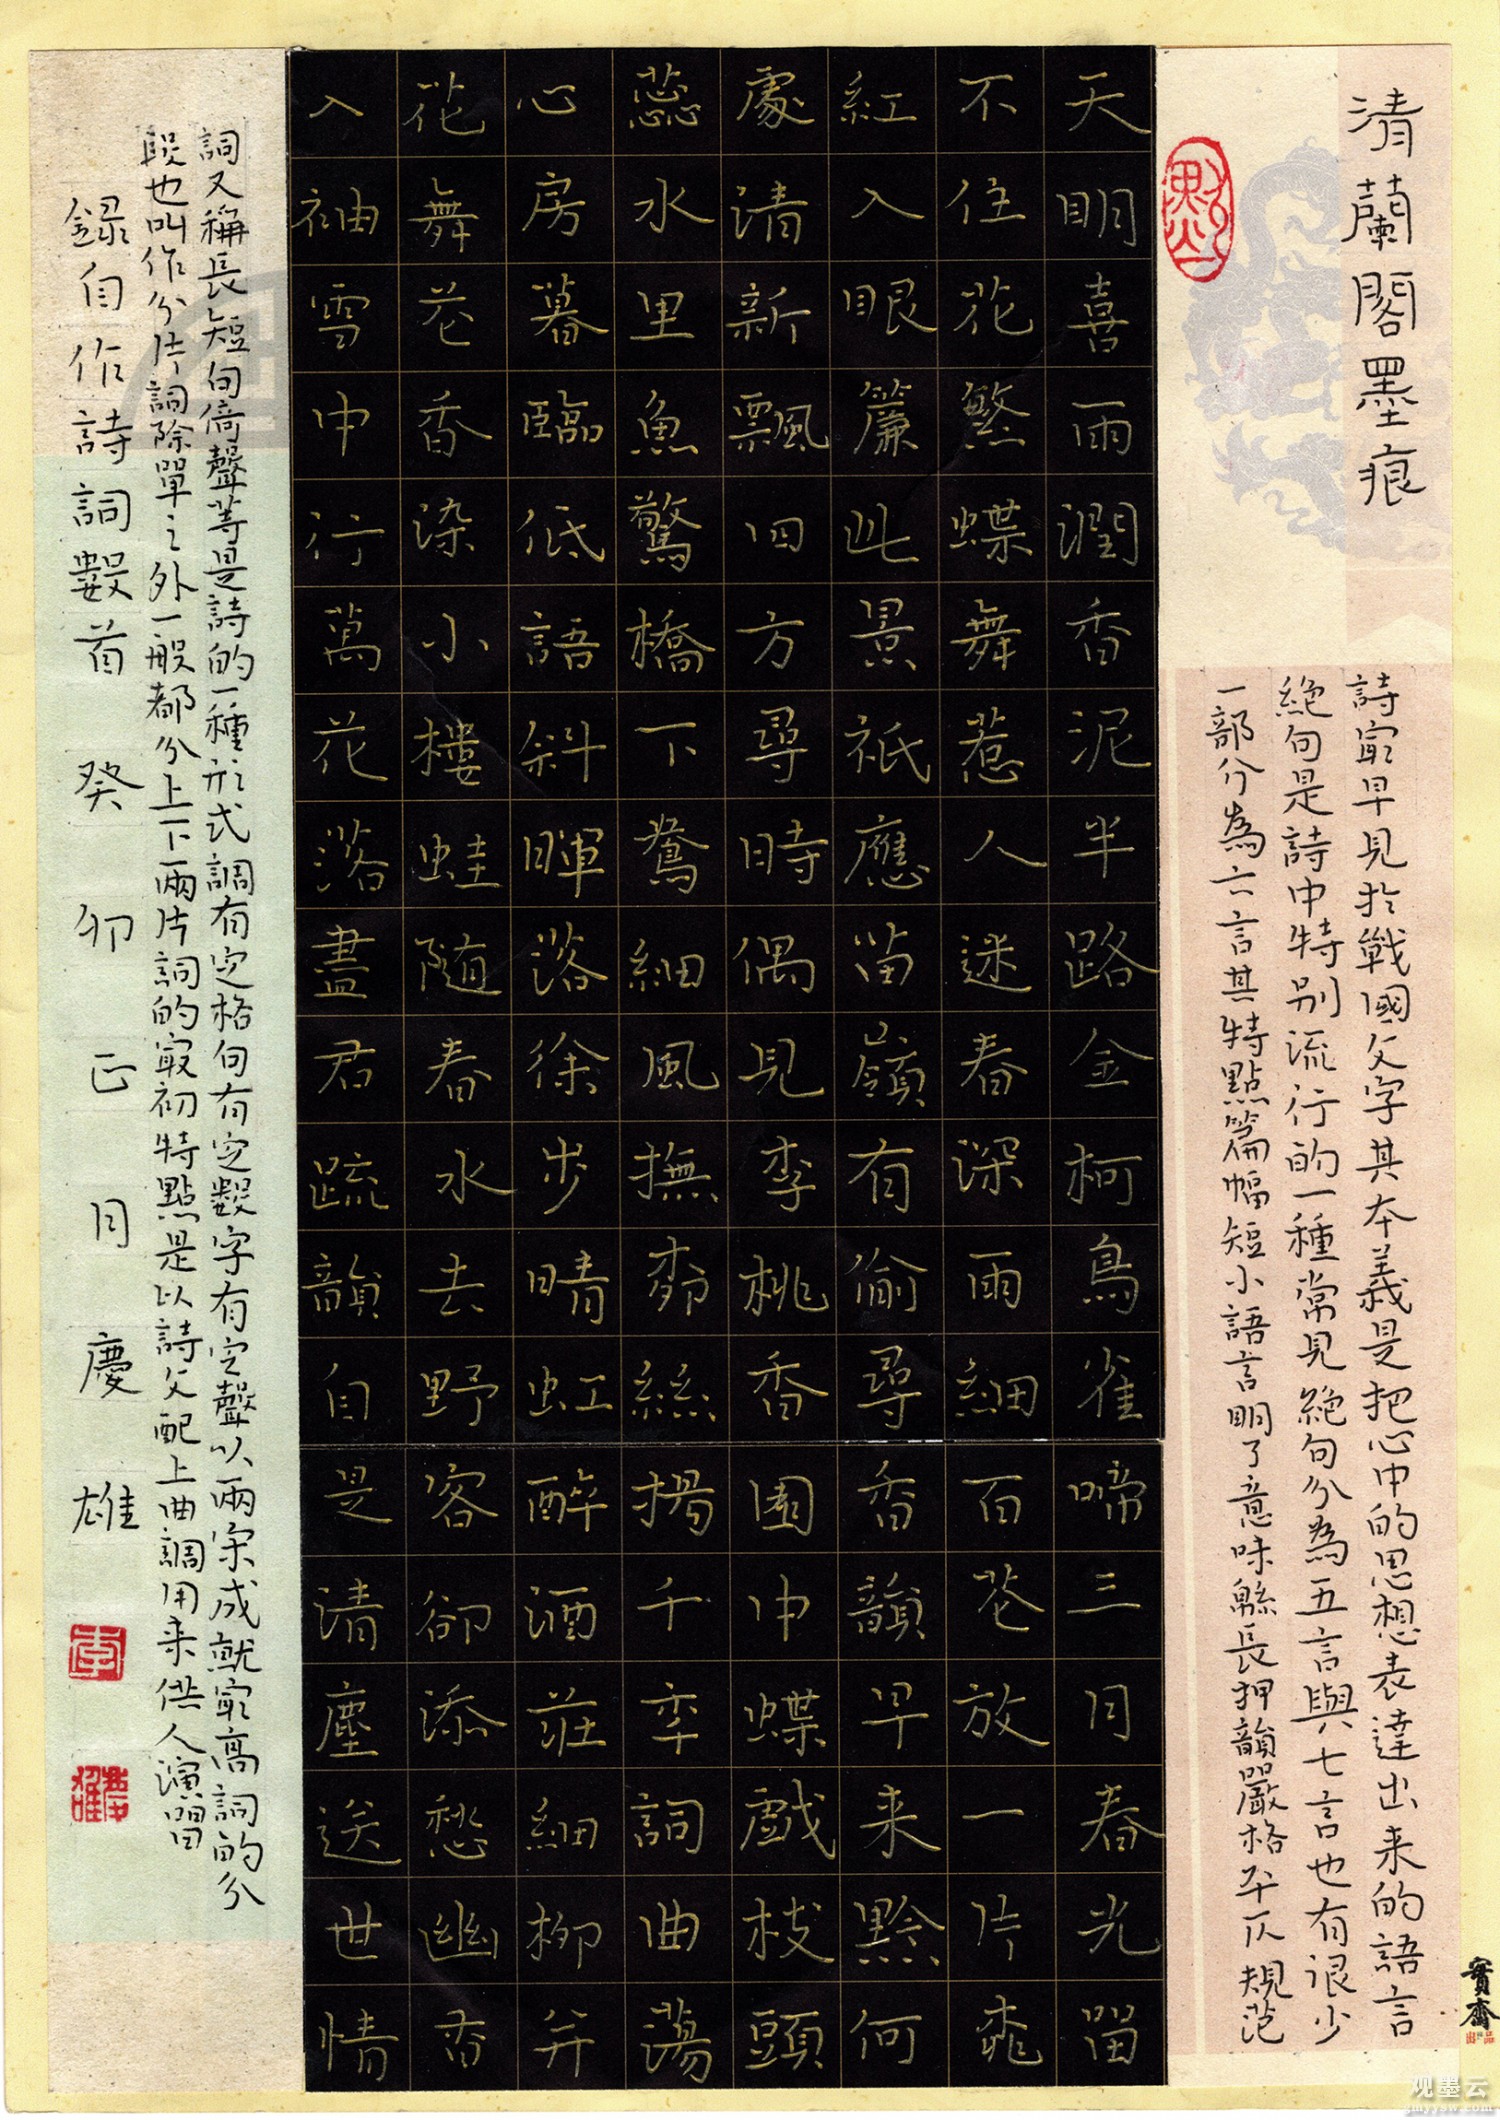 清蘭閣墨痕
詩㝡早見於戰國文字其本義是把心中的思想表達出来的語言
絶句是詩中特别流行的一種常見絶句分為五言與七言也有很少
一部分為六言其特點篇幅短小語言明了意味緜長押韻嚴格平仄規范
天明喜雨潤香泥半路金柯鳥雀啼三月春光留
不住花繁蝶舞惹人迷春深細雨百芲放一片桃
紅入眼簾此景衹應苗嶺有偷尋香韻早来黔何
處清新飄四方尋時偶見李桃香園中蝶戲枝頭
蕊水里魚驚橋下鴛細風撫柳絲楊千秊詞曲蕩
心房暮臨低語斜暉落徐步晴虹醉酒莊細柳并
花舞芲香染小樓蛙随春水去野客卻添愁幽香
入袖雪中行萬花落盡君疏韻自是清塵送世情
詞又稱長短句倚聲等是詩的一種形式調有定格句有定數字有定聲以兩宋成就㝡高詞的分
段也叫作分片詞除單之外一般都分上下兩片詞的㝡初特點是以詩文配上曲調用来供人演唱
録自作詩詞數首 癸卯正月慶雄
李
慶雄
寶齋
出品
观墨云